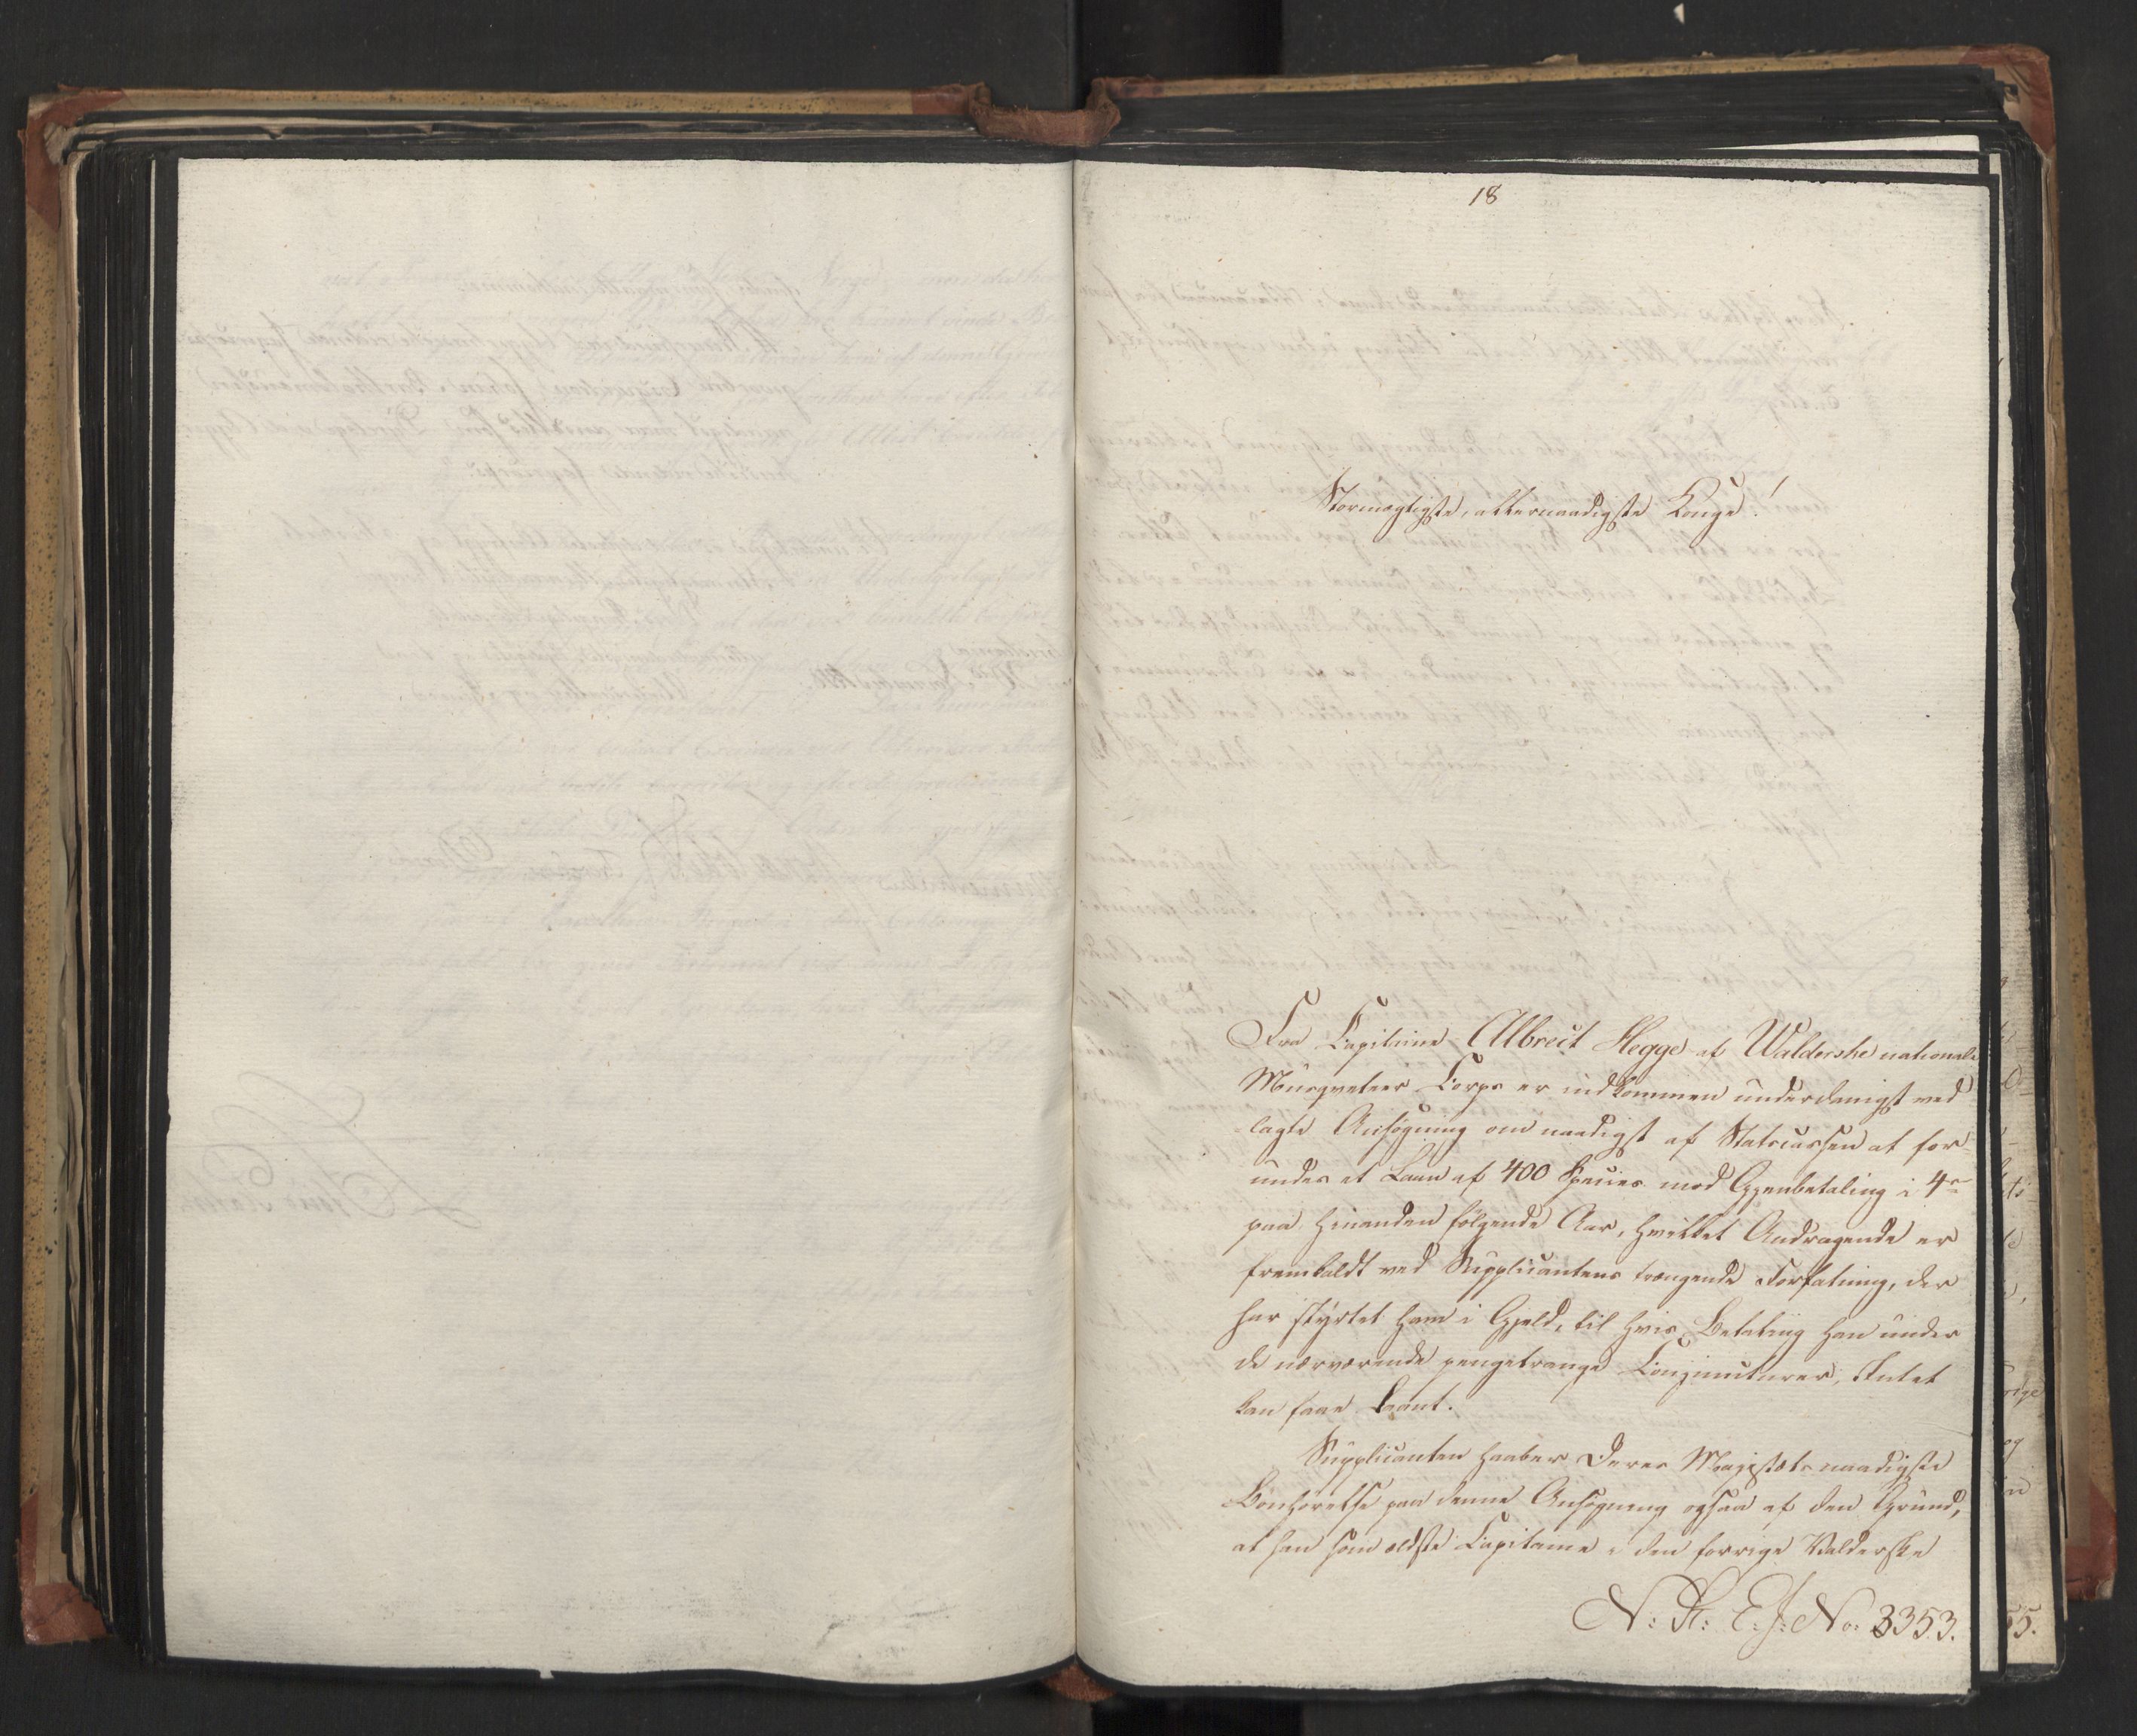 18
Stormægtigste, allernaadigste Konge!
Fra Capitaine Albrect Hegge af Walderske nationale
Musqveteer Corps er indkommen underdanigst ved-
lagte Ansøgning om naadigst af Statscassen at for-
undes et Laan af 400 Species mod Gjenbetaling i 4re
paa hinanden følgende Aar, hvilket Andragende er
fremkaldt ved Supplicantens trængende Forfatning, der
har styrtet ham i Gjeld, til hvis Betaling han under
de nærværende pengetrange Conjuncturer, Intet
kan faae laant.
Supplicanten haaber Deres Majestæts naadigste
Bønhørelse paa denne Ansøgning ogsaa af den Grund,
at han som ældste Capitaine i den forrige Valderske
N: K: E: J: No: 3353.